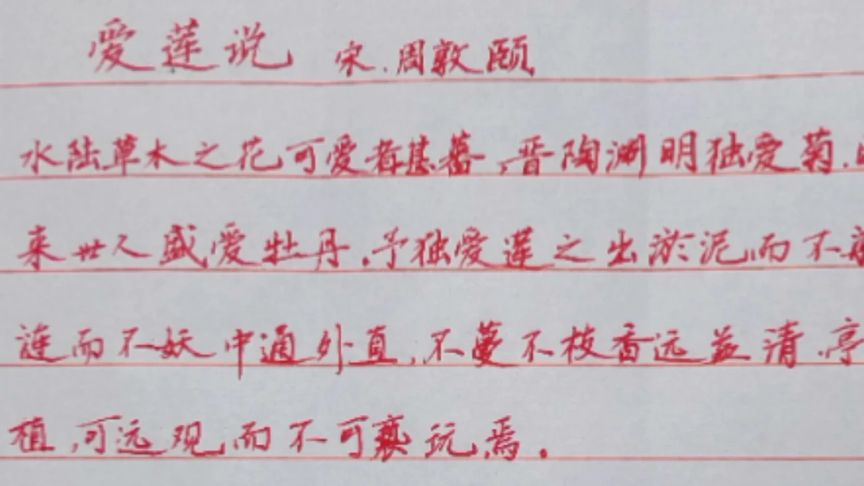 爱莲说 宋.周敦颐
水陆草木之花可爱者甚蕃,晋陶渊明独爱菊.
来世人盛爱牡丹.予独爱莲之出淤泥而不
涟而不妖中通外直,不蔓不枝香远益清.亭
植,可远观而不可亵玩焉.